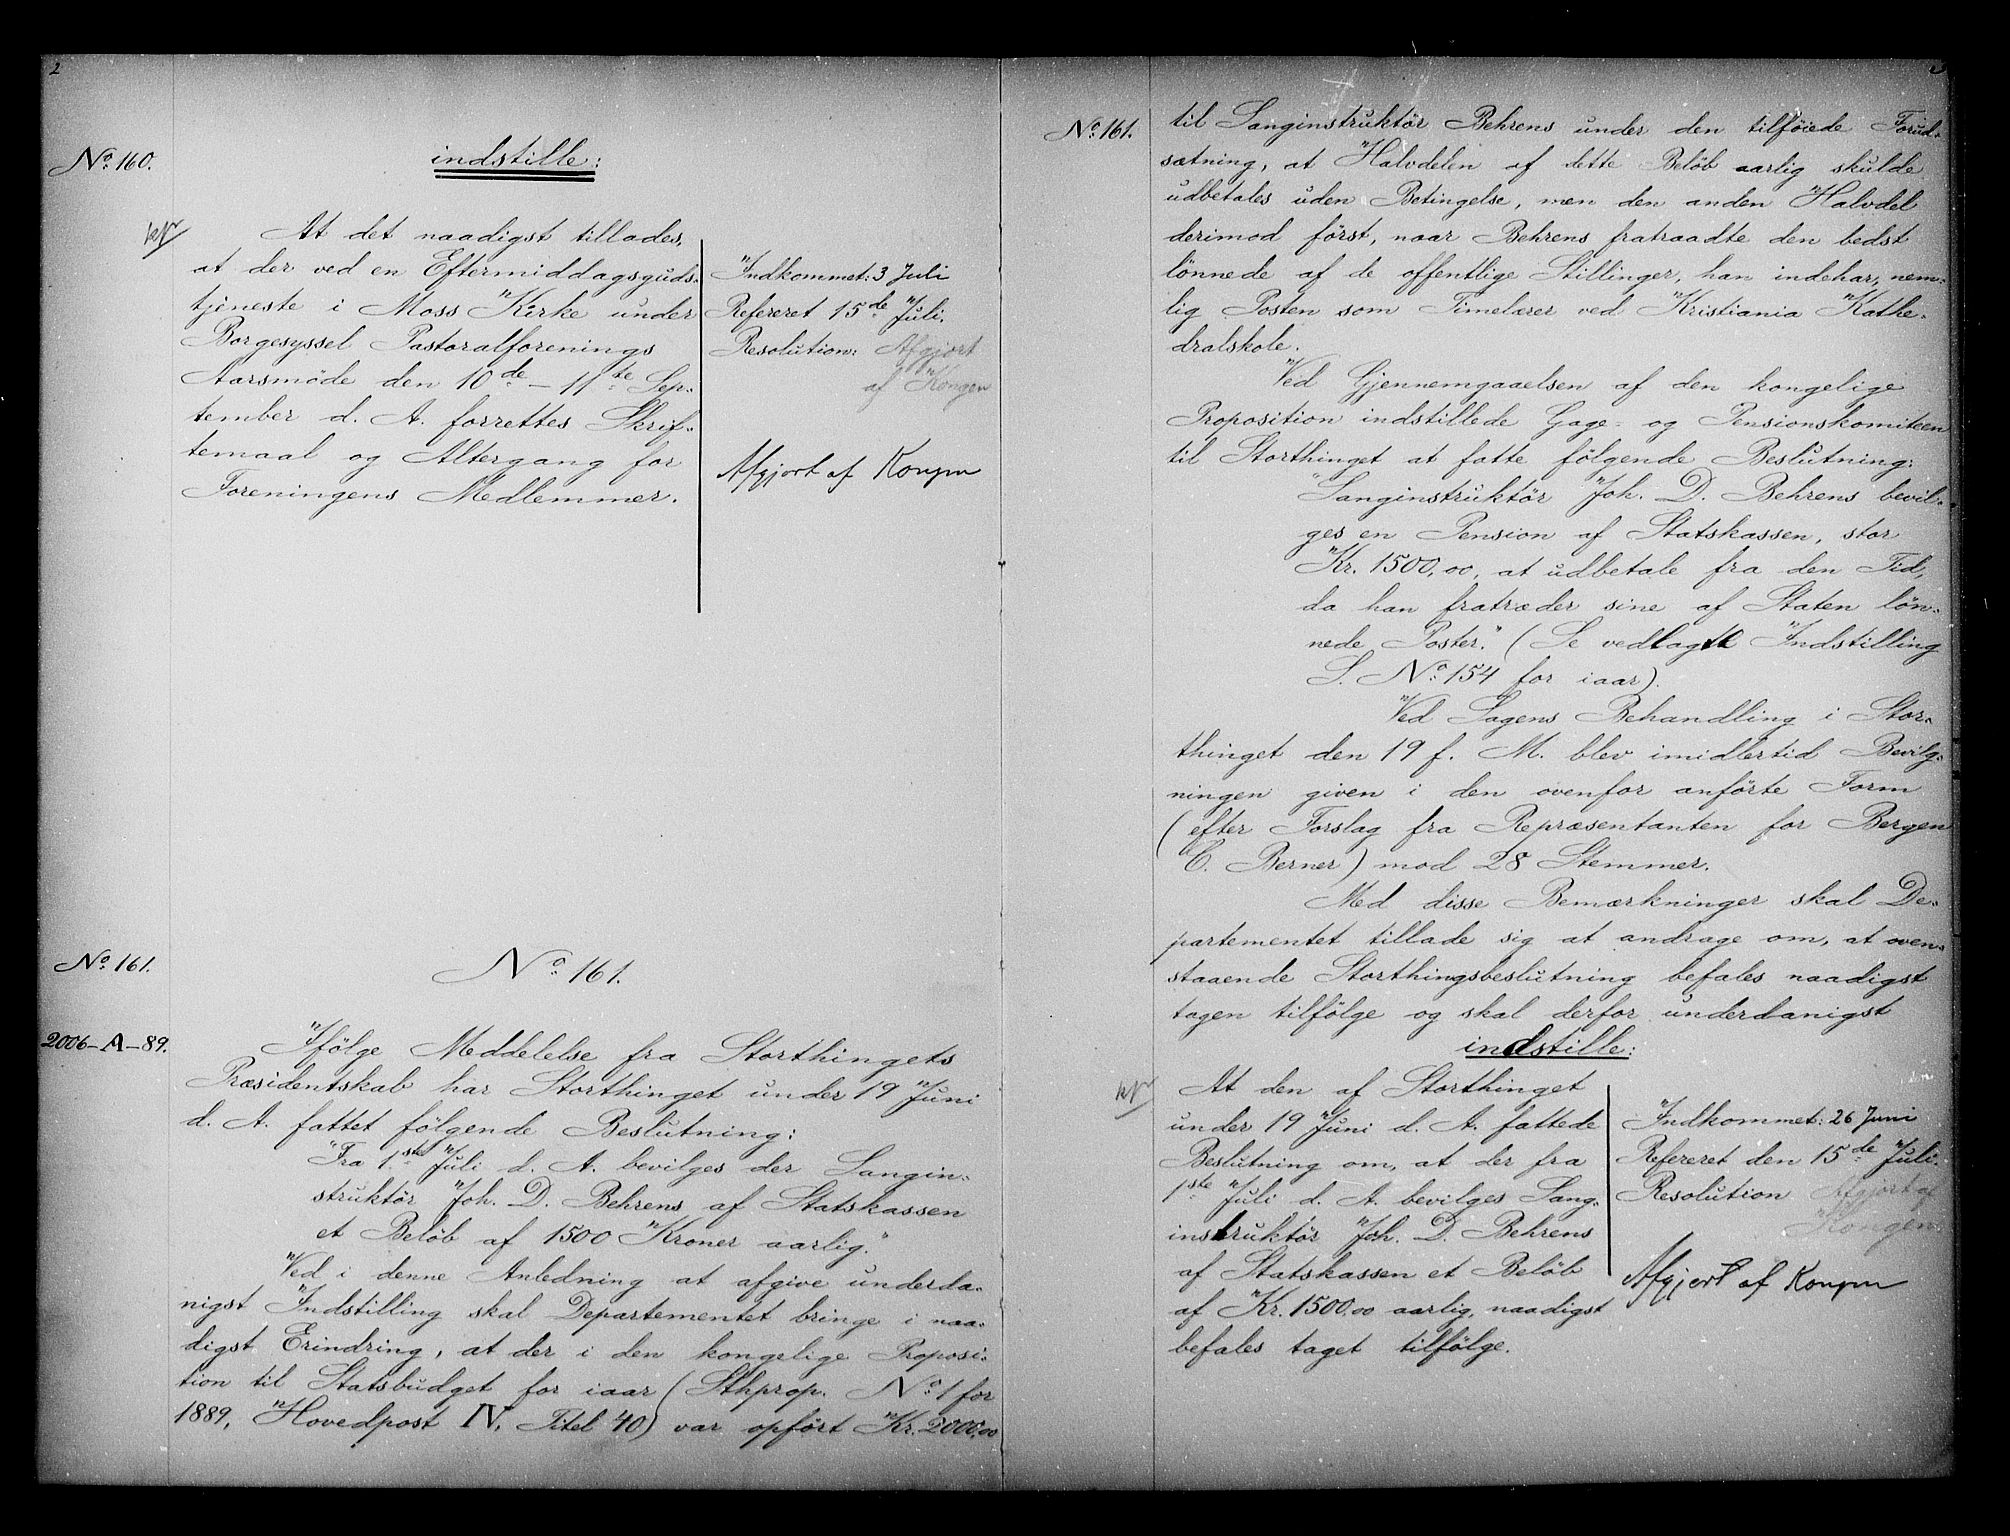 2
No. 160.
indstille:
At det naadigst tillades,
at der ved en Eftermiddagsguds-
tjeneste i Moss Kirke under
Borgesyssel Pastoralforenings
Aarsmöde den 10de – 11te Sep-
tember d. A. forrettes Skrif-
temaal og Altergang for
Foreningens Medlemmer.
Indkommet: 3 Juli
Refereret 15de Juli.
Resolution: Afgjort
af Kongen
Afgjort af Kongen
No. 161.
No. 161.
2006-A-89.
Ifölge Meddelelse fra Storthingets
Præsidentskab har Storthinget under 19 Juni
d. A. fattet fölgende Beslutning:
"Fra 1ste Juli d. A. bevilges der Sangin-
struktör Joh. D. Behrens af Statskassen
et Belöb af 1500 Kroner aarlig."
Ved i denne Anledning at afgive underda-
nigst Indstilling skal Departementet bringe i naa-
digst Erindring, at der i den kongelige Proposi-
tion til Statsbudget for iaar (Sthprop. No. 1 for
1889, Hovedpost IV, Titel 40) var opført Kr. 2000,00
No. 161.
til Sanginstruktör Behrens under den tilföiede Forud-
sætning, at Halvdelen af dette Belöb aarlig skulde
udbetales uden Betingelse, men den anden Halvdel
derimod först, naar Behrens fratraadte den bedst
lönnede af de offentlige Stillinger, han indehar, nem-
lig Posten som Timelærer ved Kristiania Kathe-
dralskole.
Ved Gjennemgaaelsen af den kongelige
Proposition indstillede Gage- og Pensionskomiteen
til Storthinget at fatte fölgende Beslutning:
"Sanginstruktör Joh. D. Behrens bevil-
ges en Pension af Statskassen, stor
Kr. 1500,00, at udbetale fra den Tid,
da han fratræder sine af Staten lön-
nede Poster." (Se vedlagte Indstilling
S. No. 154 for iaar).
Ved Sagens Behandling i Stor-
thinget den 19 f. M. blev imidlertid Bevilg-
ningen given i den ovenfor anförte Form
(efter Forslag fra Repræsentanten for Bergen
C. Berner) mod 28 Stemmer.
Med disse Bemærkninger skal De-
partementet tillade sig at andrage om, at oven-
staaende Storthingsbeslutning befales naadigst
tagen tilfölge og skal derfor underdanigst
indstille:
At den af Storthinget
under 19 Juni d. A. fattede
Beslutning om, at der fra
1ste Juli d. A. bevilges Sang-
instruktör Joh. D. Behrens
af Statskassen et Belöb
af Kr. 1500,00 aarlig, naadigst
befales taget tilfölge.
Indkommet: 26 Juni
Refereret den 15de Juli.
Resolution Afgjort af
Kongen.
Afgjort af Kongen